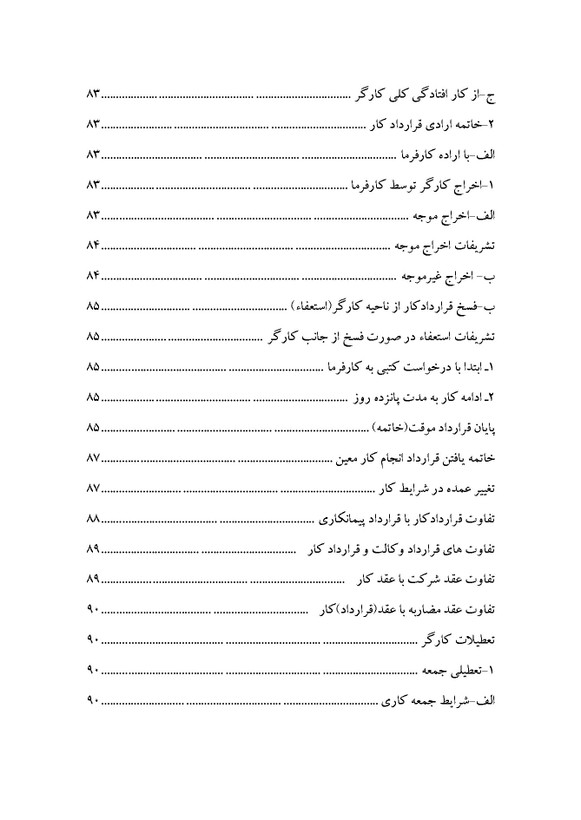 ج-از کار افتادگی کلی کارگر ................................................................................... ۸۳
۲-خاتمه ارادی قرارداد کار ................................................................................... ۸۳
الف-با اراده کارفرما ................................................................................... ۸۳
۱-اخراج کارگر توسط کارفرما ................................................................................... ۸۳
الف-اخراج موجه ................................................................................... ۸۳
تشریفات اخراج موجه ................................................................................... ۸۴
ب- اخراج غیرموجه ................................................................................... ۸۴
ب-فسخ قراردادکار از ناحیه کارگر(استعفاء) ............................................................... ۸۵
تشریفات استعفاء در صورت فسخ از جانب کارگر ....................................................... ۸۵
۱ـ ابتدا با درخواست کتبی به کارفرما ....................................................................... ۸۵
۲ـ ادامه کار به مدت پانزده روز ................................................................................... ۸۵
پایان قرارداد موقت(خاتمه) ................................................................................... ۸۵
خاتمه یافتن قرارداد انجام کار معین ....................................................................... ۸۷
تغییر عمده در شرایط کار ................................................................................... ۸۷
تفاوت قراردادکار با قرارداد پیمانکاری ....................................................................... ۸۸
تفاوت های قرارداد وکالت و قرارداد کار ................................................................... ۸۹
تفاوت عقد شرکت با عقد کار ................................................................................... ۸۹
تفاوت عقد مضاربه با عقد(قرارداد)کار ....................................................................... ۹۰
تعطیلات کارگر ................................................................................... ۹۰
۱-تعطیلی جمعه ................................................................................... ۹۰
الف-شرایط جمعه کاری ................................................................................... ۹۰